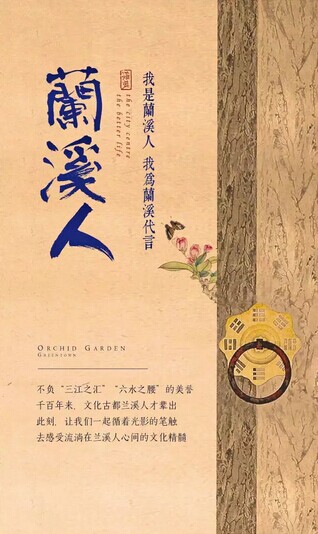 蘭溪人
the city centre
the better life
我是蘭溪人 我為蘭溪代言
ORCHID GARDEN
GREENTOWN
不负“三江之汇”“六水之腰”的美誉
千百年来，文化古都兰溪人才辈出
此刻，让我们一起循着光影的笔触
去感受流淌在兰溪人心间的文化精髓